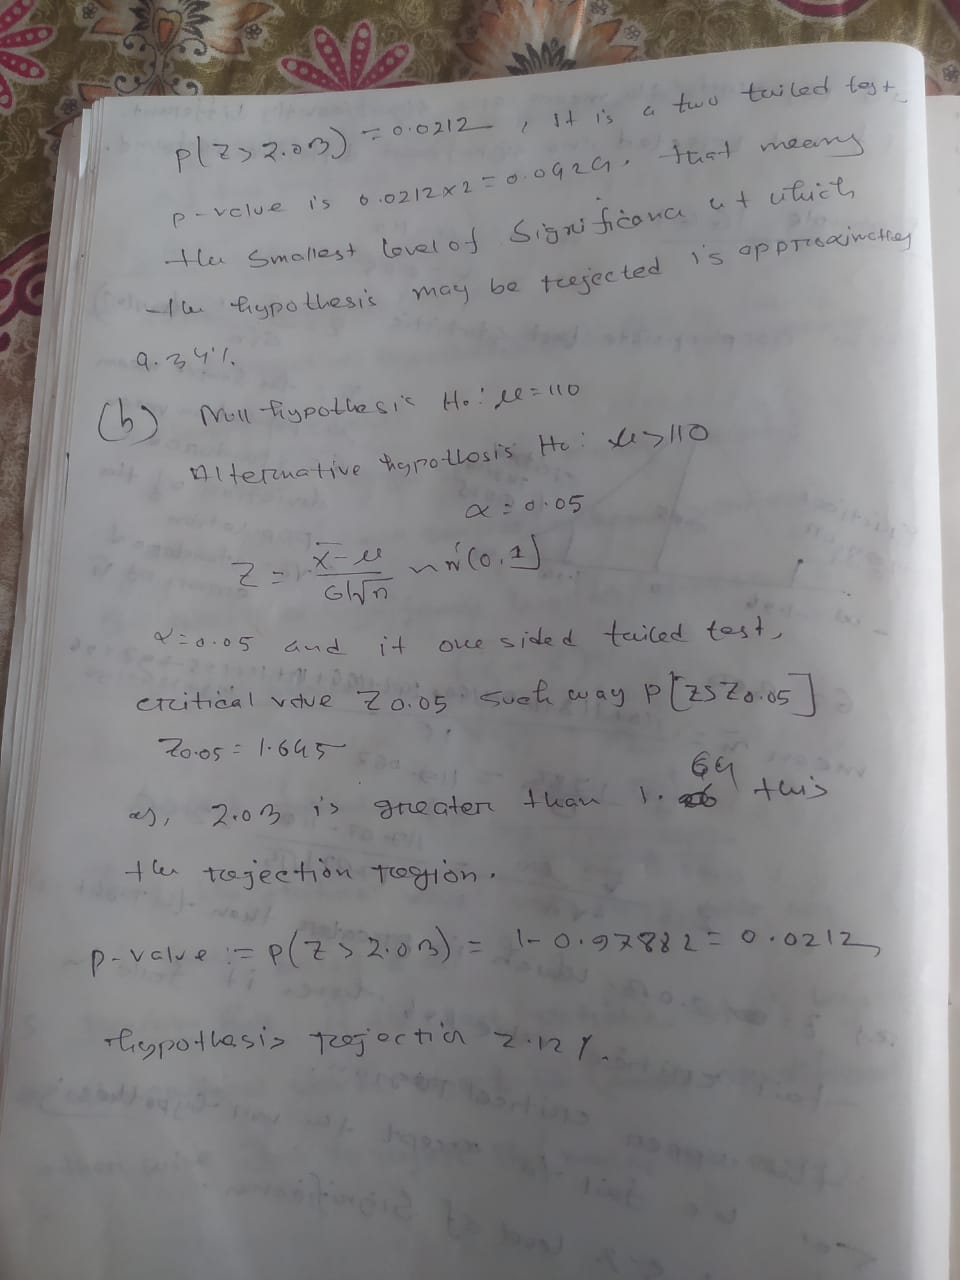 P(Z > 2.03) = 0.0212, It is a two tailed test,
p-value is 0.0212 x 2 = 0.0424. that means
the smallest level of significance at which
the hypothesis may be rejected is approximately
4.34%.
(b) Null hypothesis H₀: μ = 110
Alternative hypothesis H₁: μ > 110
α = 0.05
Z = x̄ - μ / σ/√n ~ N(0, 1)
α = 0.05 and it one sided tailed test,
critical value Z0.05 such way P[Z≤Z0.05]
Z0.05 = 1.645
64
as, 2.03 is greater than 1. this
the rejection region.
P-value := P(Z > 2.03) = 1 - 0.97882 = 0.0212,
hypothesis rejection 2.12%.